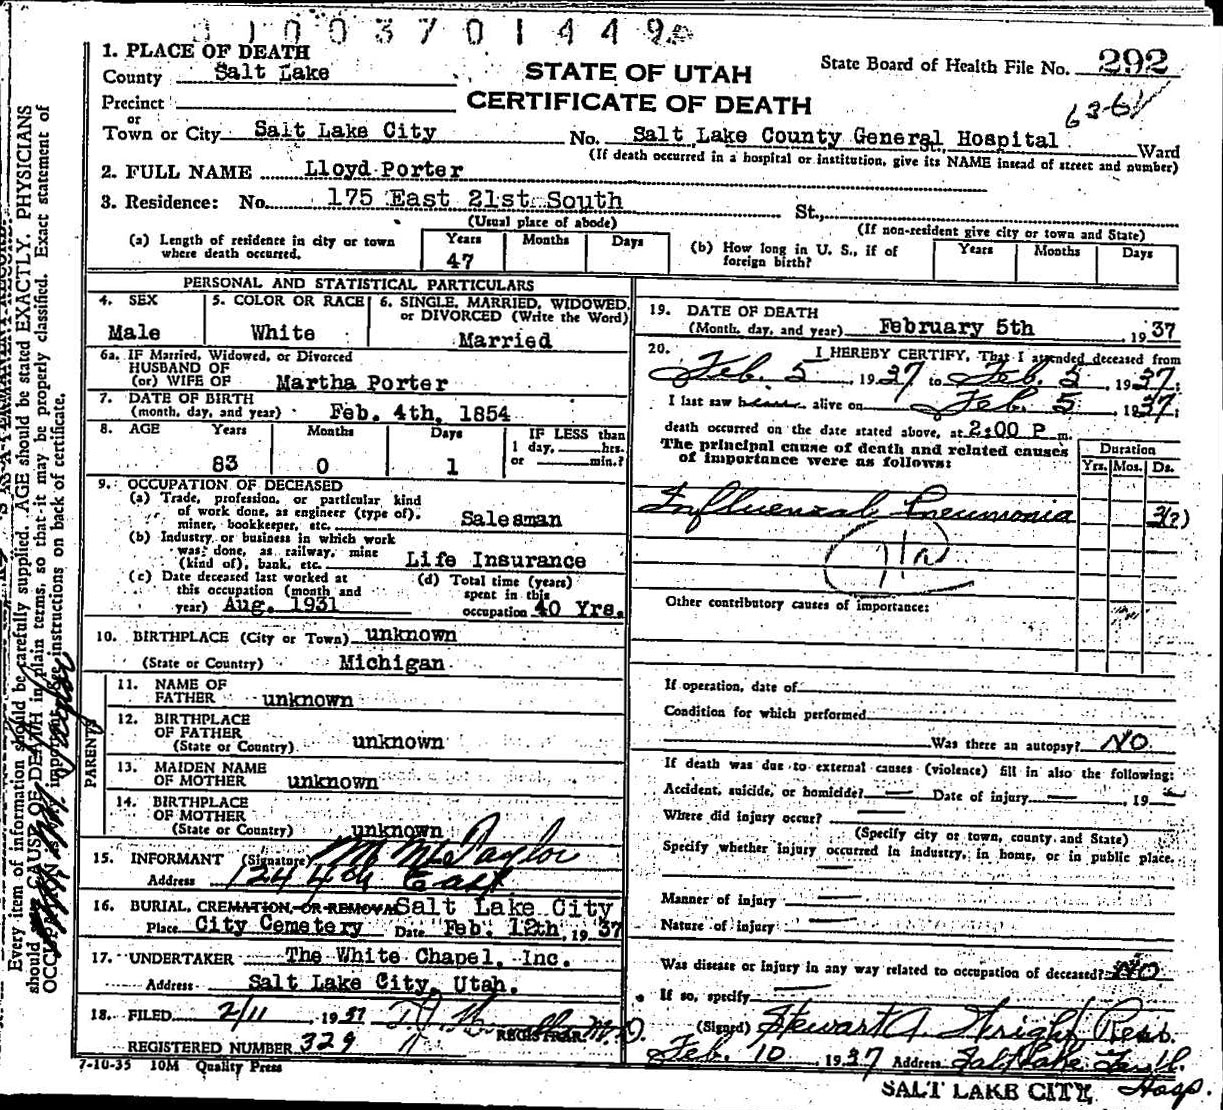 1003701449
1. PLACE OF DEATH
County Salt Lake
STATE OF UTAH
CERTIFICATE OF DEATH
State Board of Health File No. 292
63-61
Precinct
or
Town or City Salt Lake City No. Salt Lake County General Hospital Ward
(If death occurred in a hospital or institution, give its NAME insead of street and number)
2. FULL NAME Lloyd Porter
3. Residence: No. 175 East 21st South St.,
(Usual place of abode) (If non-resident give city or town and State)
(a) Length of residence in city or town where death occurred. Years 47 Months Days
(b) How long in U. S., if of foreign birth? Years Months Days
PERSONAL AND STATISTICAL PARTICULARS
4. SEX Male
5. COLOR OR RACE White
6. SINGLE, MARRIED, WIDOWED, or DIVORCED (Write the Word) Married
6a. IF Married, Widowed, or Divorced
HUSBAND OF
(or) WIFE OF Martha Porter
7. DATE OF BIRTH
(month, day, and year) Feb. 4th, 1854
8. AGE Years Months Days IF LESS than
1 day, hrs.
or min.?
83 0 1
9. OCCUPATION OF DECEASED
(a) Trade, profession, or particular kind
of work done, as engineer (type of),
miner, bookkeeper, etc. Salesman
(b) Industry or business in which work
was done, as railway, mine
(kind of), bank, etc. Life Insurance
(c) Date deceased last worked at
this occupation (month and
year) Aug. 1931
(d) Total time (years)
spent in this
occupation 40 Yrs.
10. BIRTHPLACE (City or Town) unknown
(State or Country) Michigan
PARENTS
11. NAME OF
FATHER unknown
12. BIRTHPLACE
OF FATHER
(State or Country) unknown
13. MAIDEN NAME
OF MOTHER unknown
14. BIRTHPLACE
OF MOTHER
(State or Country) unknown
15. INFORMANT (Signature) Taylor
Address 124 4th East
16. BURIAL, CREMATION, OR REMOVAL Salt Lake City
Place City Cemetery Date Feb. 12th, 1937
17. UNDERTAKER The White Chapel, Inc.
Address Salt Lake City, Utah.
18. FILED 2/11 1937
REGISTRAR
REGISTERED NUMBER 329
7-10-35 10M Quality Press
19. DATE OF DEATH
(Month, day, and year) February 5th 1937
20. I HEREBY CERTIFY, That I attended deceased from
Feb. 5, 1937 to Feb. 5, 1937;
I last saw alive on Feb. 5 1937;
death occurred on the date stated above, at 2:00 P m.
The principal cause of death and related causes
of importance were as follows:
Duration
Yrs. Mos. Ds.
Influenzal Pneumonia 3(?)
Other contributory causes of importance:
If operation, date of
Condition for which performed
Was there an autopsy? NO
If death was due to external causes (violence) fill in also the following:
Accident, suicide, or homicide? — Date of injury — 19
Where did injury occur? —
(Specify city or town, county and State)
Specify whether injury occurred in industry, in home, or in public place.
Manner of injury —
Nature of injury —
Was disease or injury in any way related to occupation of deceased? NO
If so, specify
(Signed) Stewart A. Wright Res.
Feb. 10 1937 Address Salt Lake Hosp.
SALT LAKE CITY,
Every item of information should be carefully supplied. AGE should be stated EXACTLY. PHYSICIANS
should CAUSE OF DEATH in plain terms, so that it may be properly classified. Exact statement of
important. See instructions on back of certificate.